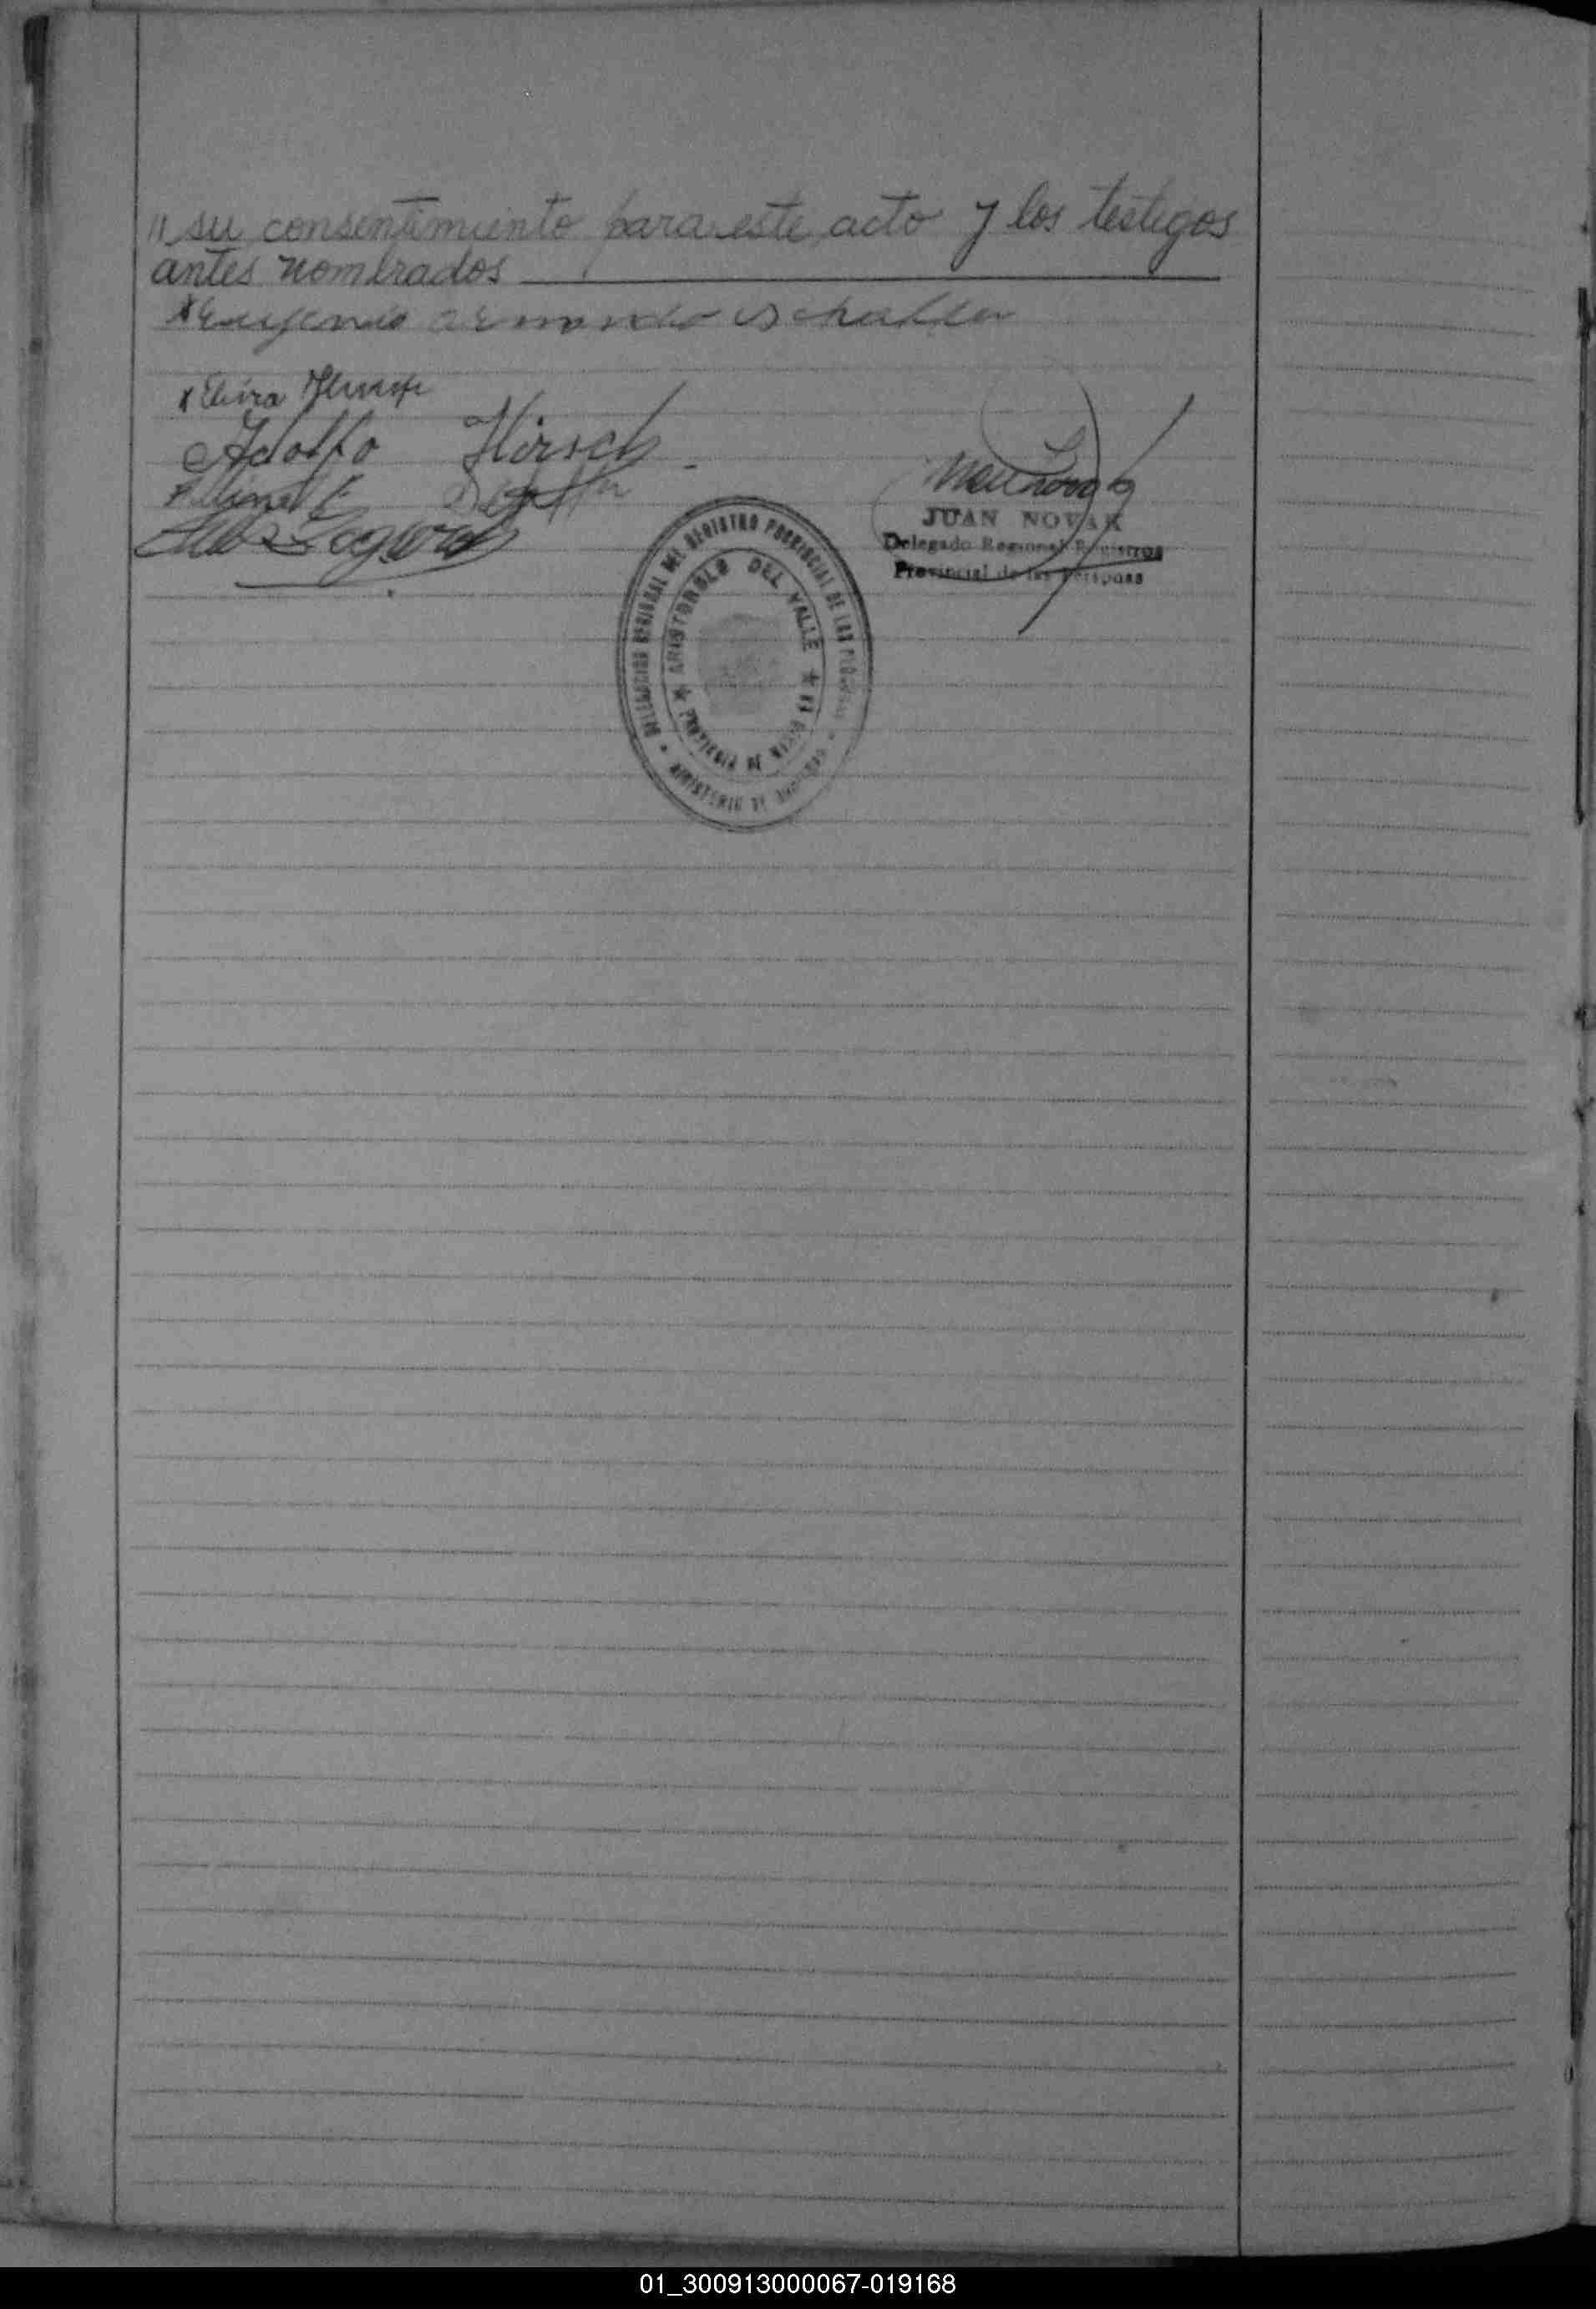 " su consentimiento para este acto y los testigos
antes nombrados
x Eugenio armando schaller
x Elvira
Adolfo Hirsch
JUAN NOVAK
Delegado Regional Registros
Provincial de las Personas
DELEGACION REGIONAL DEL REGISTRO PROVINCIAL DE LAS PERSONAS
ARISTOBULO DEL VALLE
PROVINCIA DE
MINISTERIO DE GOBIERNO
01_300913000067-019168